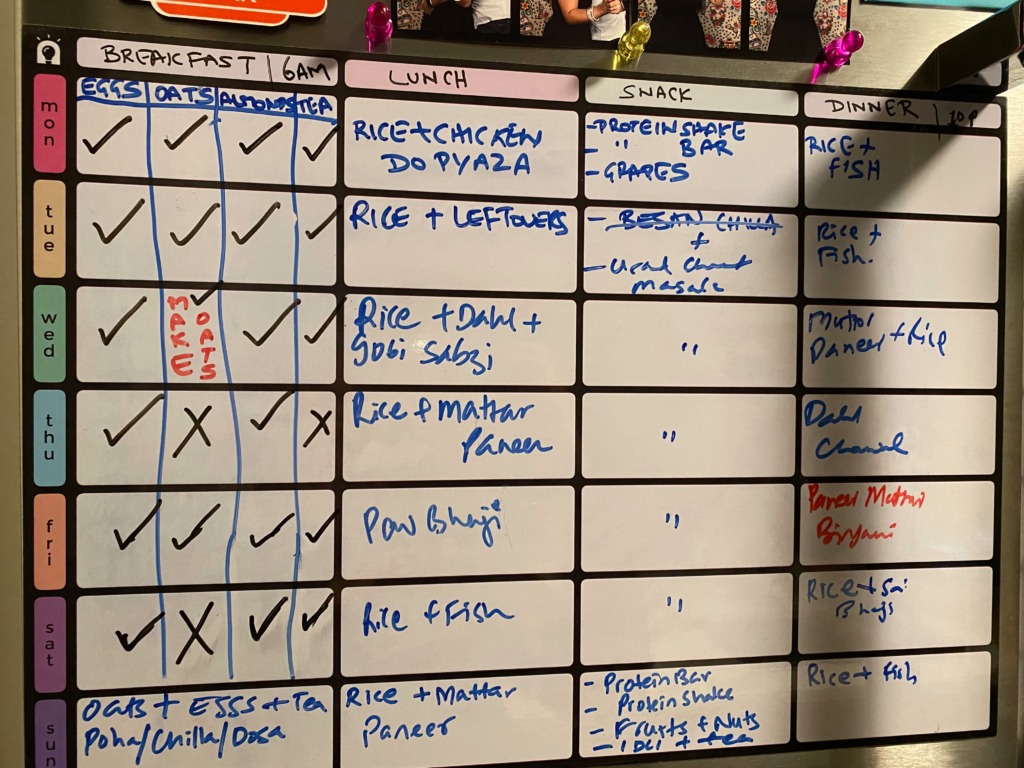 BREAKFAST | 6AM
LUNCH
SNACK
DINNER | 10P
EGGS | OATS | ALMONDS | TEA
mon
✓ ✓ ✓ ✓
RICE + CHICKEN
DO PYAZA
- PROTEIN SHAKE
- " BAR
- GRAPES
RICE +
FISH
tue
✓ ✓ ✓ ✓
RICE + LEFTOVERS
- BESAN CHILLA
+
- Urad Chaat
masala
Rice +
Fish.
wed
✓ ✓ ✓ ✓
MAKE
OATS
Rice + Dahl +
gobi Sabzi
"
Mattar
Paneer + Rice
thu
✓ X ✓ X
Rice + Mattar
Paneer
"
Dahl
Chawal
fri
✓ ✓ ✓ ✓
Pav Bhaji
"
Paneer Mattar
Biryani
sat
✓ X ✓ ✓
Rice + Fish
"
Rice + Sai
Bhaji
sun
Oats + EGGS + Tea
Poha/Chilla/Dosa
Rice + Mattar
Paneer
- Protein Bar
- Protein Shake
- Fruits + Nuts
- IDLI + tea
Rice + Fish